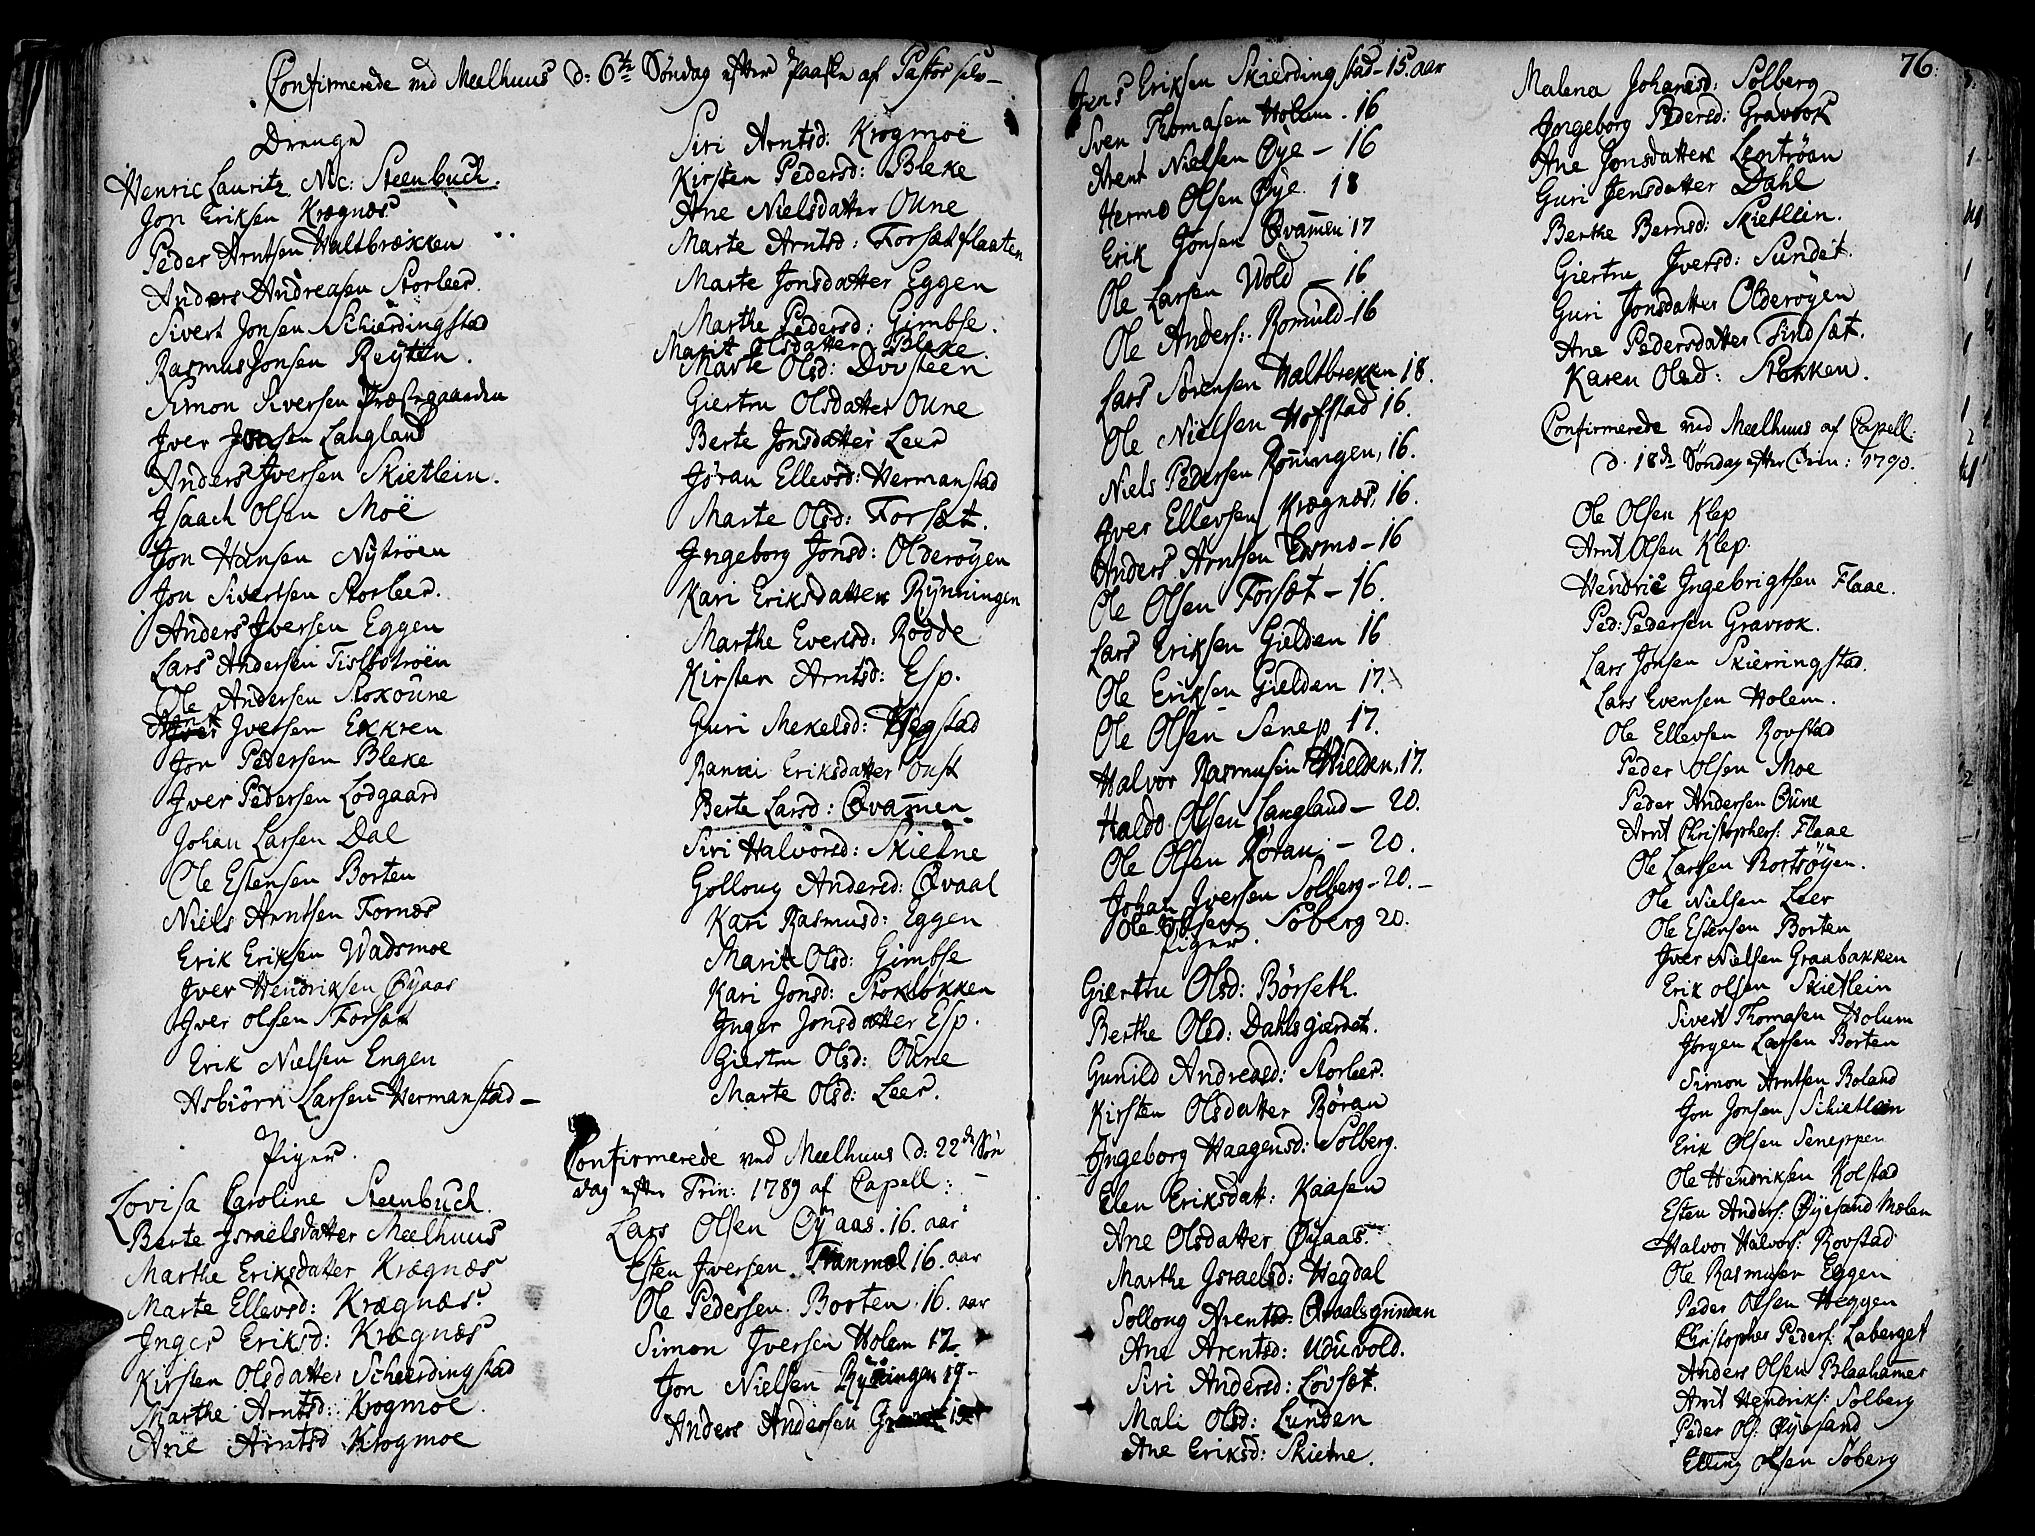 Confirmerede ved Meelhuus d: 6te Søndag efter Paaske af Pastor selv-
Drenge
Henric Lauritz Nic: Steenbuch.
Jon Eriksen Krægnæs
Peder Arntsen Haltbrækken
Anders Andreasen Storleer.
Sivert Jonsen Schierdingstad
Rasmus Jonsen Reÿten.
Simon Siversen Præstegaarden
Jver Jonsen Langland
Anders Jversen Skietlein.
Jsaach Olsen Moë
Jon Hansen Nÿtröen
Jon Sivertsen Storleer.
Anders Jversen Eggen
Lars Andersen
Ole Andersen Stokoune
Arnt Jversen Ekkren
Jon Petersen Bleke
Jver Pedersen Lodgaard
Johan Larsen Dal
Ole Estensen Borten
Niels Arntsen Fornæs
Erik Eriksen Wadsmoe
Jver Hendriksen Øÿaas
Jver Olsen Forsæt
Erik Nielsen Engen
Asbiörn Larsen Hermanstad-
Piger.
Lovisa Caroline Steenbuch.
Berte Jsraelsdatter Meelhuus
Marthe Eriksdatter Krægnæs
Marte Ellevsd: Krægnæs
Jnger Eriksd: Krægnæs
Kirsten Olsdatter Scheerdingstad
Marthe Arntsd: Krogmoe.
Ane Arntsd Krogmoe
Siri Arntsd: Krogmoë
Kirsten Pedersd: Bleke
Ane Nielsdatter Oune
Marte Arntsd: Forsætflaaten
Marte Jonsdatter Eggen
Marthe Pedersd: Gimbse.
Marit Olsdatter Bleke.
Marte Olsd: Dovsteen
Giertru Olsdatter Oune
Berte Jonsdatter Leer
Jöran Ellevsd: Hermanstad
Marte Olsd: Forsæt.
Jngeborg Jonsd: Olderöÿen
Kari Eriksdatter Rÿnningen
Marthe Evertsd: Rodde
Kirsten Arntsd: Esp.
Guri Mekelsd: Hegstad
Rannei Eriksdatter Oust
Berte Larsd: Qvammen
Siri Halvorsd: Skietne
Gollong Andersd: Qvaal
Kari Rasmusd: Eggen
Marit Olsd: Gimbse
Kari Jonsd: Stokløkken
Jnger Jonsdatter Esp.
Giertru Olsd: Oune
Marte Olsd: Leer.
Confirmerede ved Meelhuus d: 22de Søn
dag efter Trin: 1789 af Capell:
Lars Olsen Øÿaas. 16. aar
Esten Jversen Tranmæl 16. aar
Ole Pedersen Borten. 16. aar
Simon Jversen Holem 17.
Jon Nielsen Rÿningen 19-
Anders Andersen
Jens Eriksen Skierdingstad-15. aar
Sven Thomasen Holum. 16
Arent Nielsen Øÿe - 16
Hermo Olsen Øÿe. 18
Erik Jonsen Qvammen 17
Ole Larsen Wold - 16
Ole Anders: Romuld-16
Lars Sörensen Haltbrekken 18.
Ole Nielsen Hofstad 16.
Niels Pedersen Rönningen, 16.
Jver Ellevsen Krægnæs, 16.
Anders Arntsen Lermo-16
Ole Olsen Forsæt-16.
Lars Eriksen Gielden 16
Ole Eriksen Gielden 17.
Ole Olsen Senep 17.
Halvor Rasmusen Hielden, 17.
Haldo Olsen Langland- 20.
Ole Olsen Röran - 20.
Johan Jversen Solberg-20.-
Ole Olsen Söberg 20.
Piger.
Giertru Olsd: Börseth.
Berthe Olsd: Dahlsgierdet.
Gunild Andreasd: Storleer.
Kirsten Olsdatter Röran
Jngeborg Haagensd: Solberg.
Elen Eriksdatt: Kaasen
Ane Olsdatter Øÿaas.
Marthe Jsraelsd: Hegdal
Sollong Arentsd: Qvaalsgrinden
Ane Arentsd: Uduvold.
Siri Andersd: Lövset.
Mali Olsd: Lunden
Ane Eriksd: Skietne.
76.
Malena Johansd: Solberg
Jngeborg Pedersd: Gravrok
Ane Jonsdatter Lentröan
Guri Jensdatter Dahl
Berthe Bernsd: Skietlein.
Giertru Jversd: Sundet.
Guri Jonsdatter Olderöÿen
Ane Pedersdatter Tindsæt.
Karen Olsd: Stokken.
Confirmerede ved Meelhuus af Capell.
d. 18de Søndag efter Trin: 1790.
Ole Olsen Klep
Arnt Olsen Klep.
Hendric Jngebrigtsen Flaae.
Ped: Pedersen Gravrok.
Lars Jonsen Skierringstad.
Lars Evensen Holem.
Ole Ellevsen Rovstad
Peder Olsen Moe
Peder Andersen Oune
Arnt Christophers: Flaae
Ole Larssen Bortröÿen.
Ole Nielsen Leer
Ole Estensen Borten
Jver Nielsen Graabakken
Erik Olsen Skietlein
Sivert Thomasen Holum
Jörgen Larsen Borten
Simon Arntsen Boland
Jon Jonsen Schietlein
Erik Olsen Seneppen
Ole Hendriksen Kolstad
Esten Anders: Øÿesand Mælen
Halvor Halvors: Rovstad
Ole Rasmusen Eggen
Peder Olsen Heggen
Christopher Peders: Laberget
Anders Olsen Blaahamer
Arnt Hendriks: Solberg
Peder Ols: Øÿesand
Elling Olsen Söberg